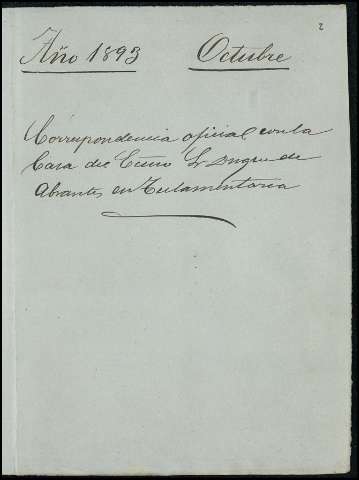 2
Año 1893 Octubre
Correspondencia oficial con la
Casa del Excmo Sr Duque de
Abrantes en Testamentaria